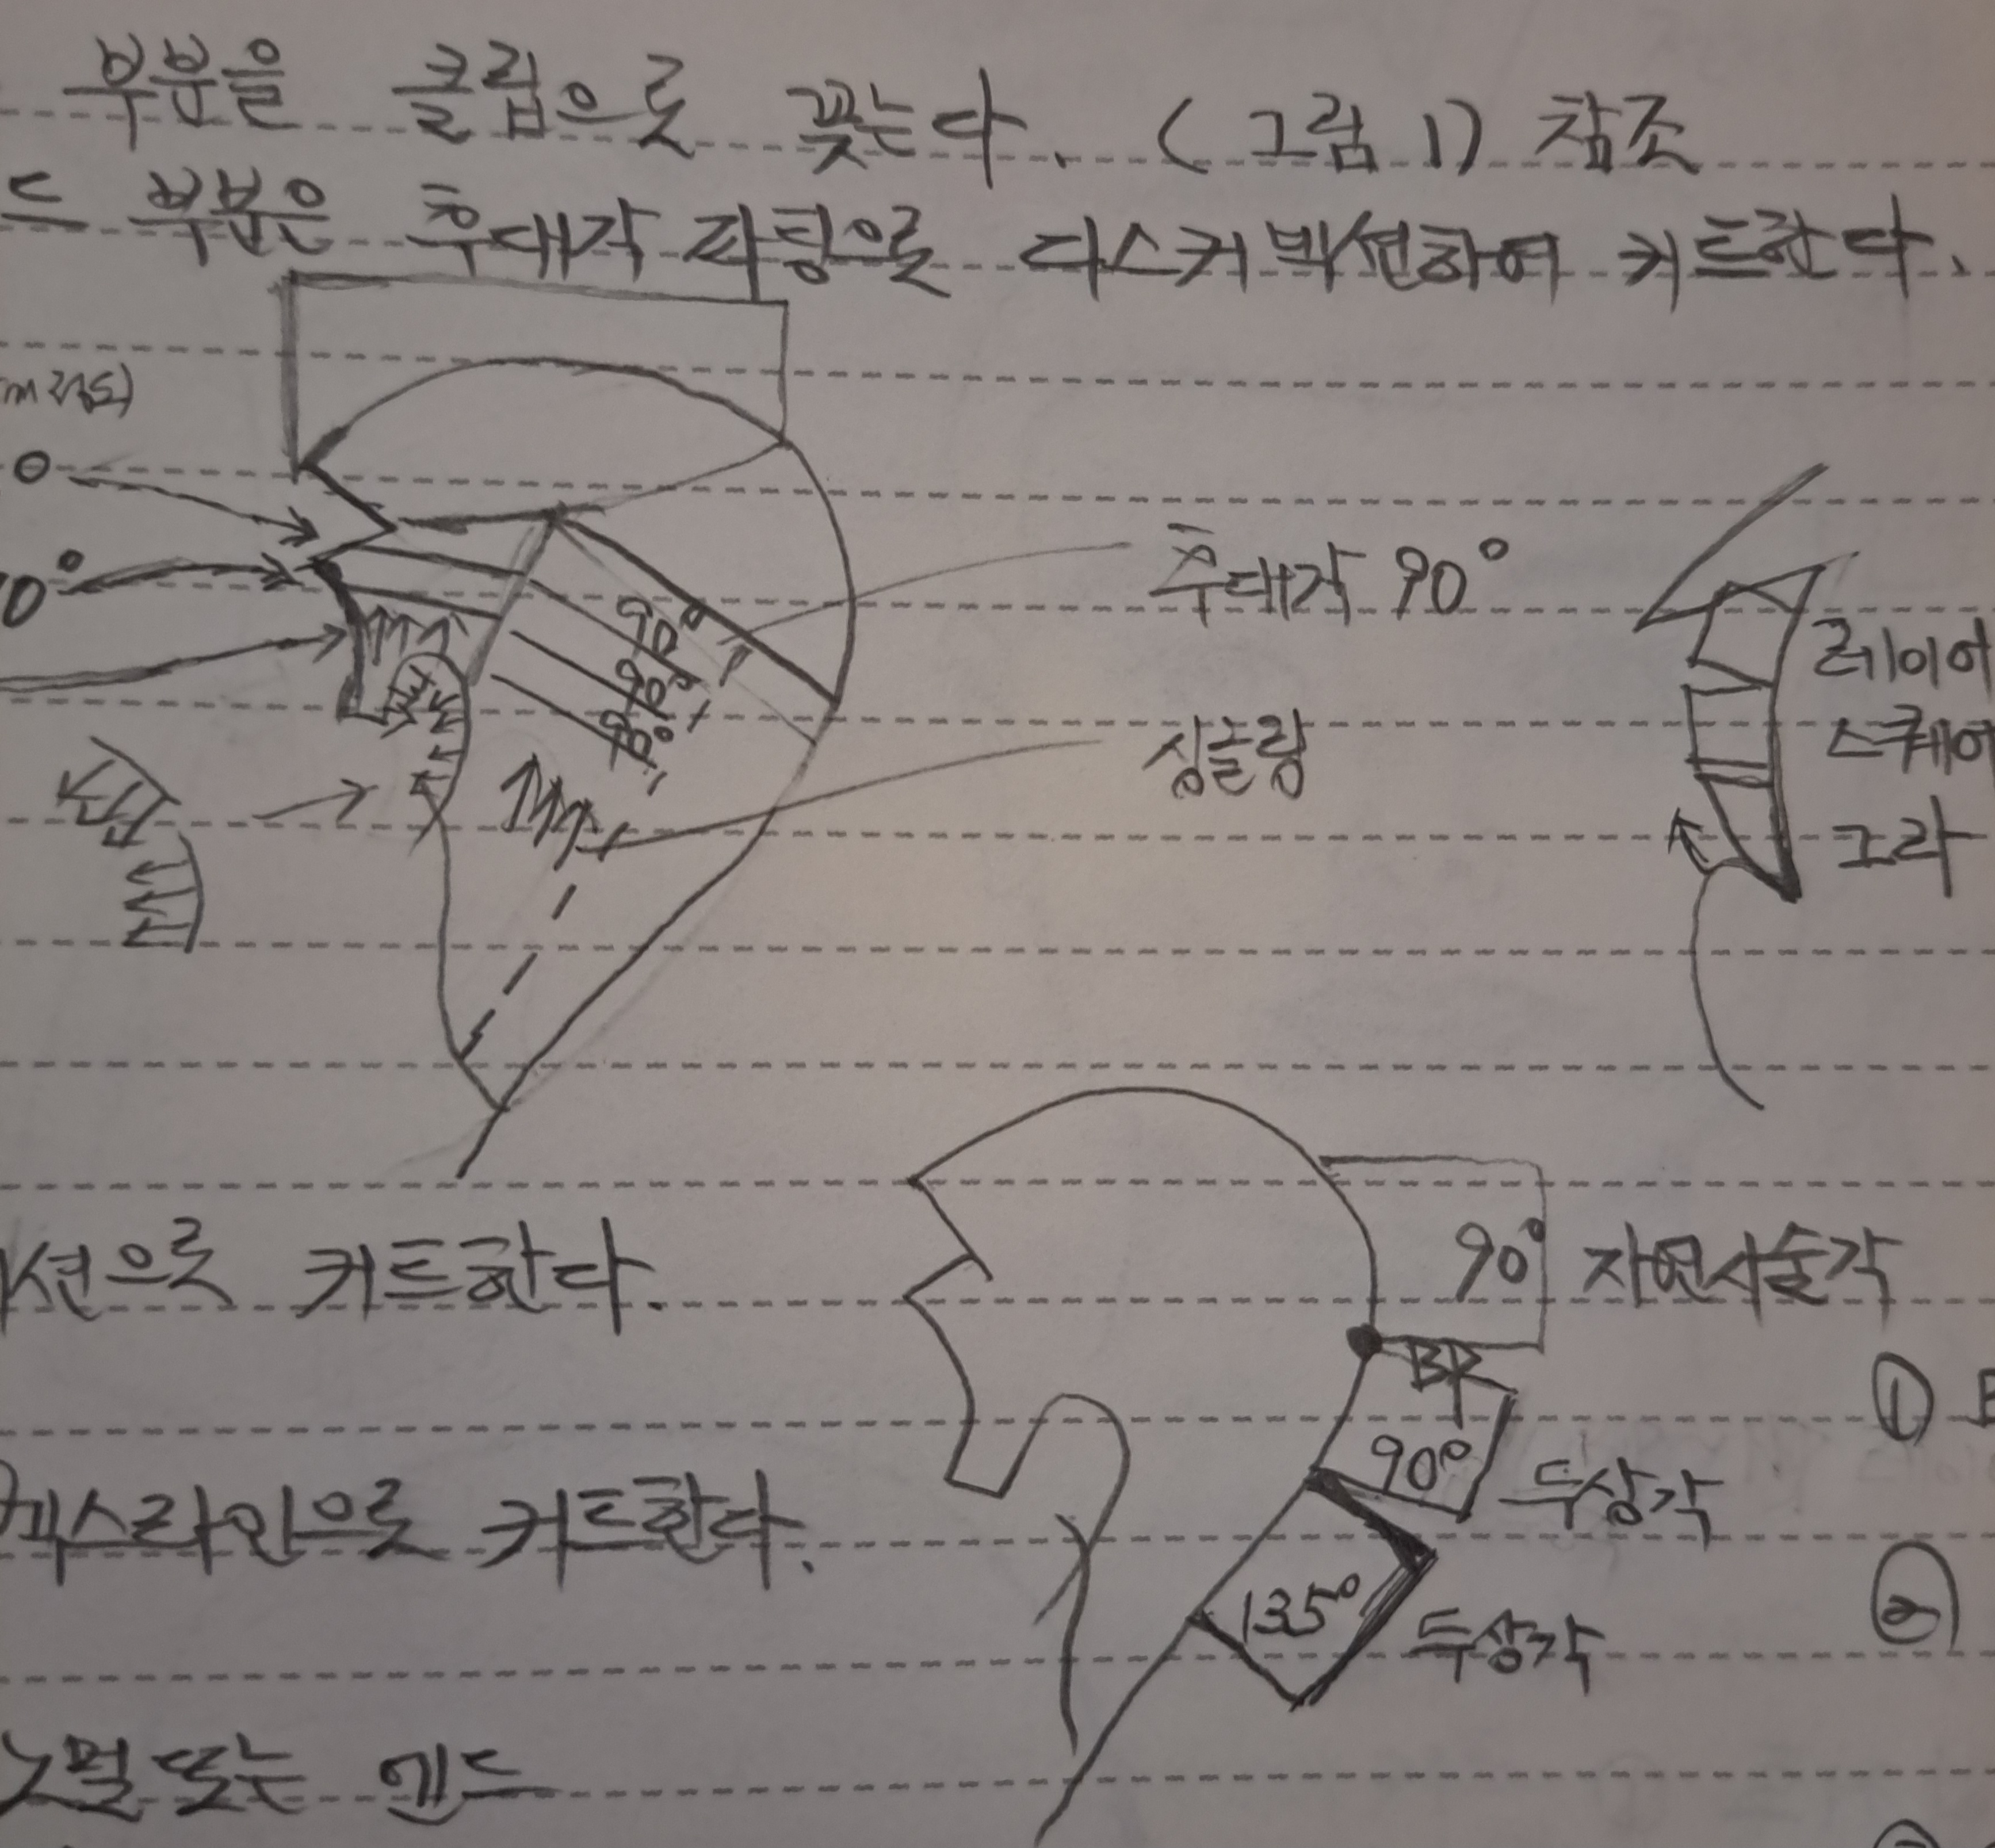 부분을 클립으로 꽂는다. (그림 1) 참조
드 부분은 후대각 파팅으로 디스커넥션하여 커트한다.
0
0°
90°
90°
90°
후대각 90°
싱글링
레이어
스퀘어
그라
션으로 커트한다.
90° 자연시술각
BP
90° 두상각
135° 두상각
①
②
벡스라인으로 커트한다.
노멀 또는 엔드